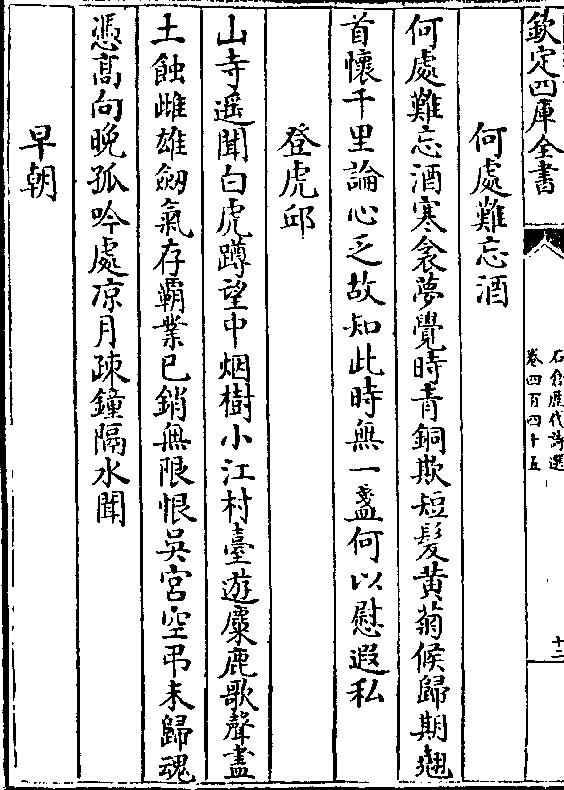 欽定四庫全書
石倉歷代詩選
卷四百四十五
十二
何處難忘酒
何處難忘酒寒衾夢覺時青銅欺短髮黄菊候歸期翹
首懷千里論心乏故知此時無一盞何以慰遐私
登虎邱
山寺遥聞白虎蹲望中烟樹小江村臺遊麋鹿歌聲盡
土蝕雌雄劔氣存霸業已銷無限恨吳宮空弔未歸魂
憑髙向晚孤吟處凉月疎鐘隔水聞
早朝